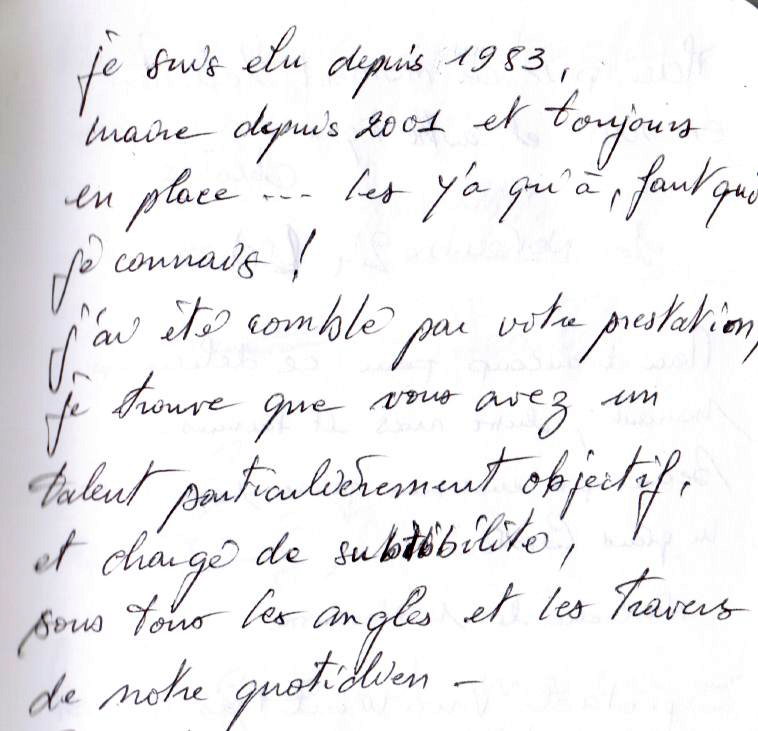 je suis elu depuis 1983,
maire depuis 2001 et toujours
en place --- les y'a qu'à, faut qu'o
je connais !
j'ai été comblé par votre prestation,
je trouve que vous avez un
talent particulièrement objectif,
et chargé de subtibilité,
sous tous les angles et les travers
de notre quotidien -